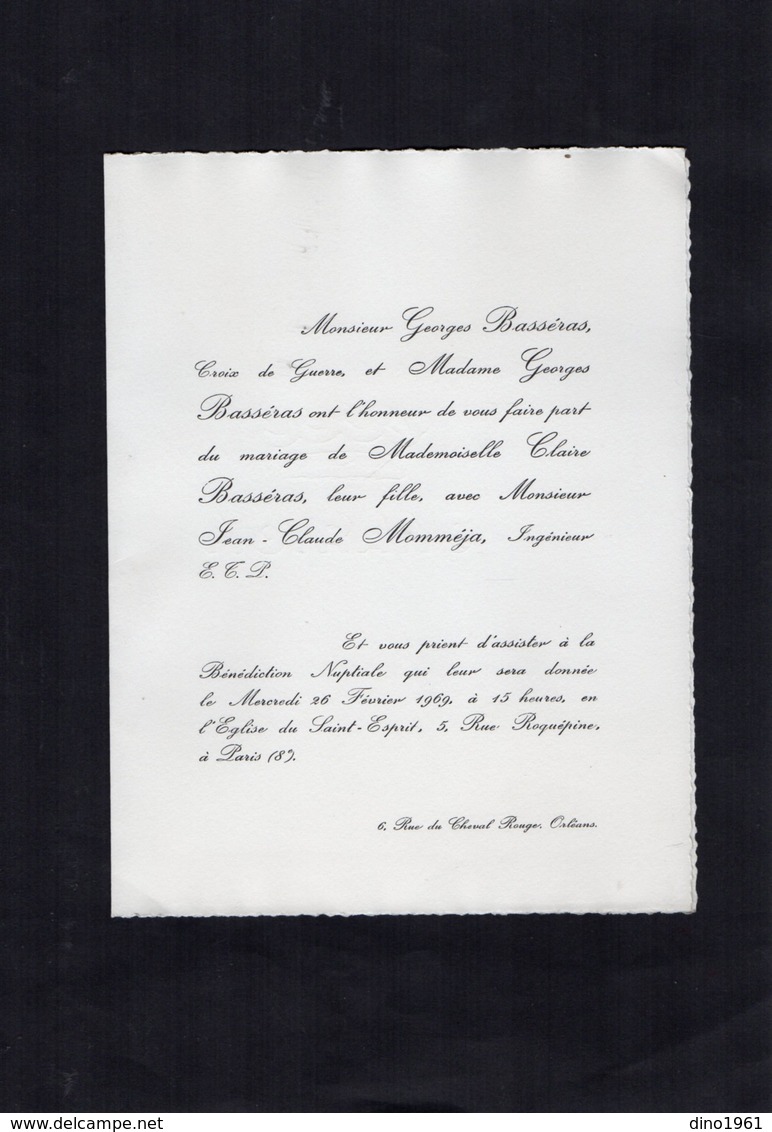 Monsieur Georges Basséras,
Croix de Guerre, et Madame Georges
Basséras ont l'honneur de vous faire part
du mariage de Mademoiselle Claire
Basséras, leur fille, avec Monsieur
Jean - Claude Momméja, Ingénieur
E. T. P.
Et vous prient d'assister à la
Bénédiction Nuptiale qui leur sera donnée
le Mercredi 26 Février 1969, à 15 heures, en
l'Eglise du Saint-Esprit, 5, Rue Roquépine,
à Paris (8e).
6, Rue du Cheval Rouge. Orléans.
www.delcampe.net
dino1961